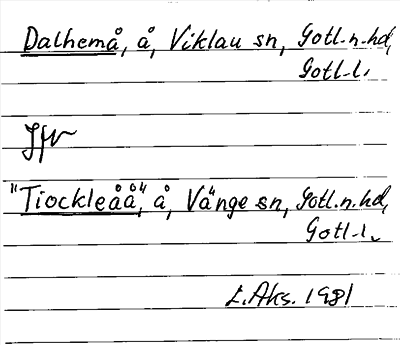 Dalhemå, å, Viklau sn, Gotl. n. hd,
Gotl. l.
Jfr
"Tiockleåå", å, Vänge sn, Gotl. n. hd,
Gotl. l.
L. Aks. 1981